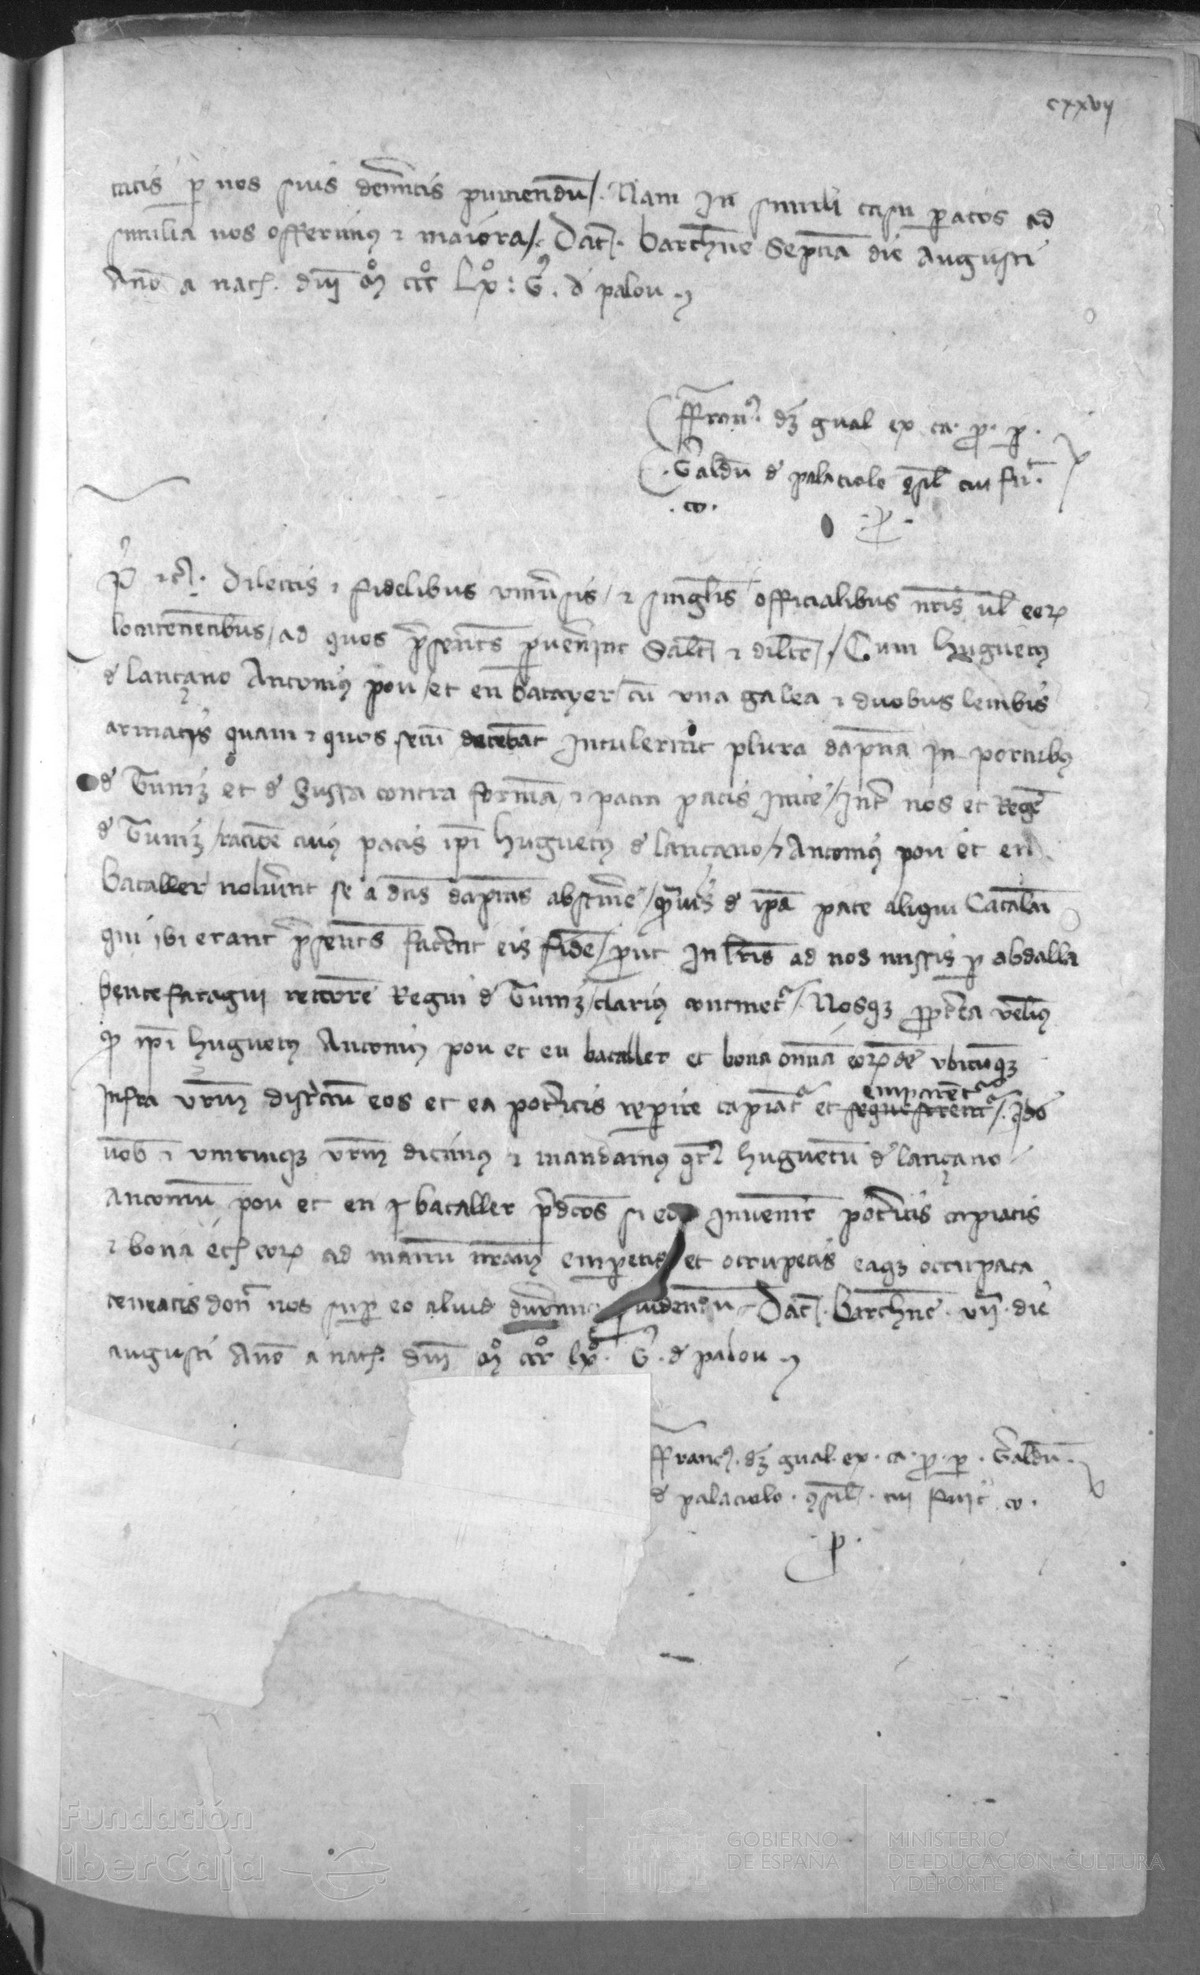 cxxvij
tatis p nos suis demitis puniendu /. Nam in simili casu paatos ad
similia nos offerimus ⁊ maiora /. Dat. Barchne Septia die Augusti
Anno a nat. dni Mo ccco Lxo : G. de palou
ffranc. dez gual ex ca. p. p.
Galdu de palaciolo qsil cui fuit
co.
p.
P ⁊c. Dilectis ⁊ fidelibus univsis / ⁊ singlis officialibus nris ul eorum
locatenentibus / ad quos psentes pvenint Salt ⁊ dilcc / Cum huguetus
de lançano Antonius pou / et en batayer / cu una galea ⁊ duobus lembis
armatis quam ⁊ quos secu ducebat intulerint plura dapna in portubus
de Tuniz et de Sussa contra forma / ⁊ pacta pacis inite / int nos et Rege
de Tuniz / racioe cuius pacis ipi huguetus de lançano / ⁊ Antonius pou et en
bataller noluint se a dcis dapnis abstine / quis de ipa pace aliqui Catalai
qui ibi erant psentes facent eis fide / put in lris ad nos missis p abdalla
bentefaragui rectore Regni de Tuniz / clarius continet / Nosqz ppterea velimus
qd ipi huguetus Antonius pou et en bataller et bona omia eorumde ubicumqz
infra vrm districtu eos et ea potitis repire capiant et emparent sequestrent /. Ido
vob ⁊ unicuiqz vrm dicimus ⁊ mandamus qt huguetu de lançano
Antoniu pou et en bataller pdcos si eos invenire potitis capiatis
⁊ bona et eorum ad manu nram empetis et occupetis eaqz occupata
teneatis donec nos sup eo aliud duxim pvidendu Dat. Barchne. vii. die
augusti Anno a nat. dni Mo ccco lxo. G. de palou
ffranc. dez gual. ex. ca. p. p. Galdu.
de palaciolo. qsil. cui fuit co.
p.
Fundación
iberCaja
GOBIERNO
DE ESPAÑA
MINISTERIO
DE EDUCACIÓN, CULTURA
Y DEPORTE